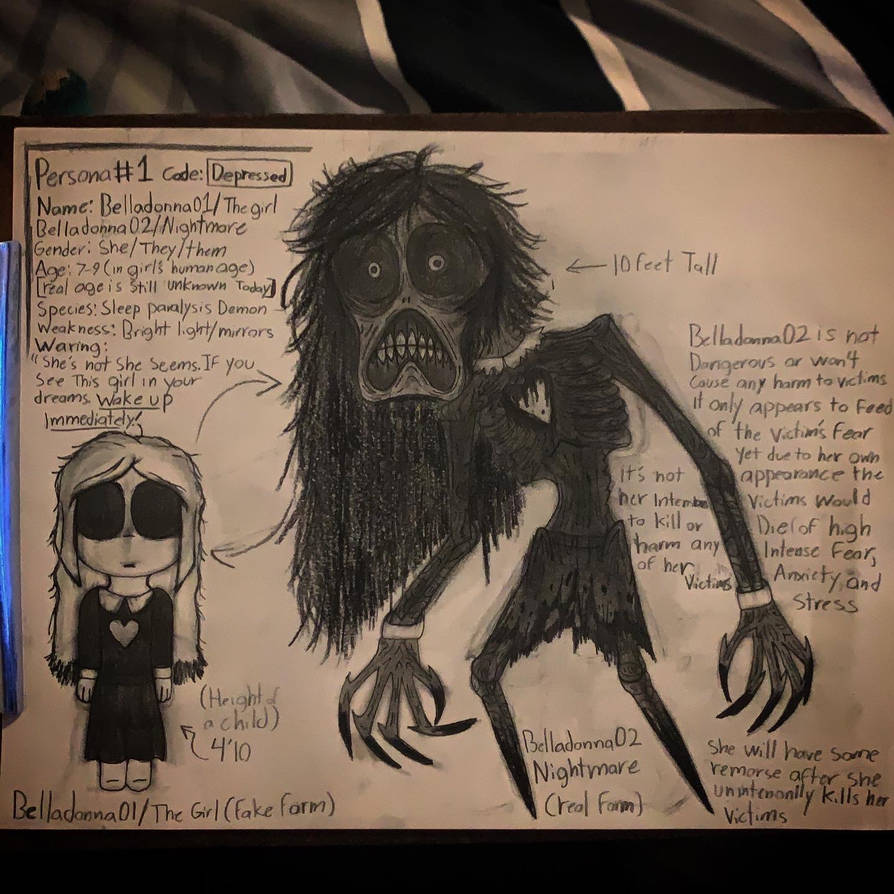 Persona#1 Code: Depressed
Name: Belladonna01/The girl
Belladonna02/Nightmare
Gender: She/They/them
Age: 7-9 (in girl's human age)
[real age is still unknown Today]
Species: Sleep paralysis Demon
Weakness: Bright light/mirrors
Waring:
"She's not She Seems. If you
See This girl in your
dreams. Wake up
Immediately!"
10 feet Tall
Belladonna02 is not
Dangerous or won't
Cause any harm to victims
it only appears to Feed
of the Victim's Fear
Yet due to her own
appearance the
Victims would
Die(of high
Intense Fear,
Anxiety, and
Stress
It's not
her
to kill or
harm any
of her
Victims
(Height of
a child)
4'10
Belladonna01/The Girl (Fake Form)
Belladonna02
Nightmare
(real Form)
She will have some
remorse after she
kills her
victims